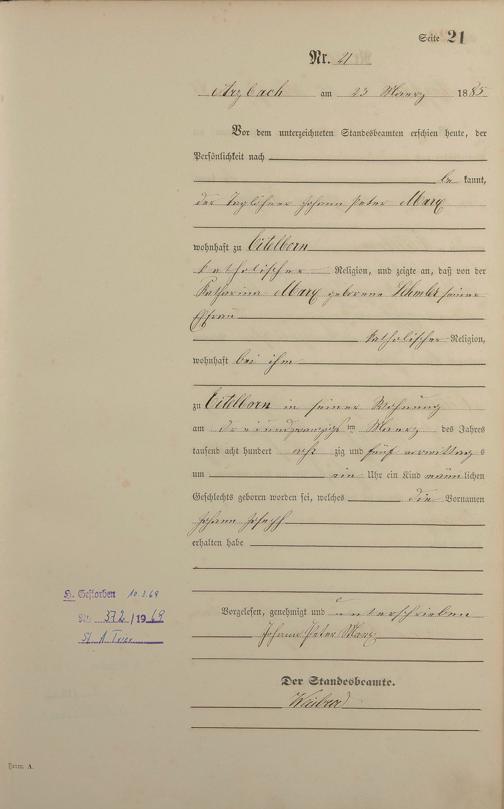 Seite 21
Nr. 21
Arzbach am 23 Maerz 1885
Vor dem unterzeichneten Standesbeamten erschien heute, der
Persönlichkeit nach
be kannt,
der Taglöhner Johann Peter Marx
wohnhaft zu Eitelborn
katholischer Religion, und zeigte an, daß von der
Katharina Marx geborene seiner
Ehefrau
katholischer Religion,
wohnhaft bei ihm
zu Eitelborn in seiner Wohnung
am dreiundzwanzigsten Maerz des Jahres
tausend acht hundert acht zig und fünf vormittags
um ein Uhr ein Kind männlichen
Geschlechts geboren worden sei, welches die Vornamen
Johann Joseph
erhalten habe
H. Gestorben 10.3.69
Nr. 372/1969
St. A Trier
Vorgelesen, genehmigt und unterschrieben
Johann Peter Marx
Der Standesbeamte.
Form. A.